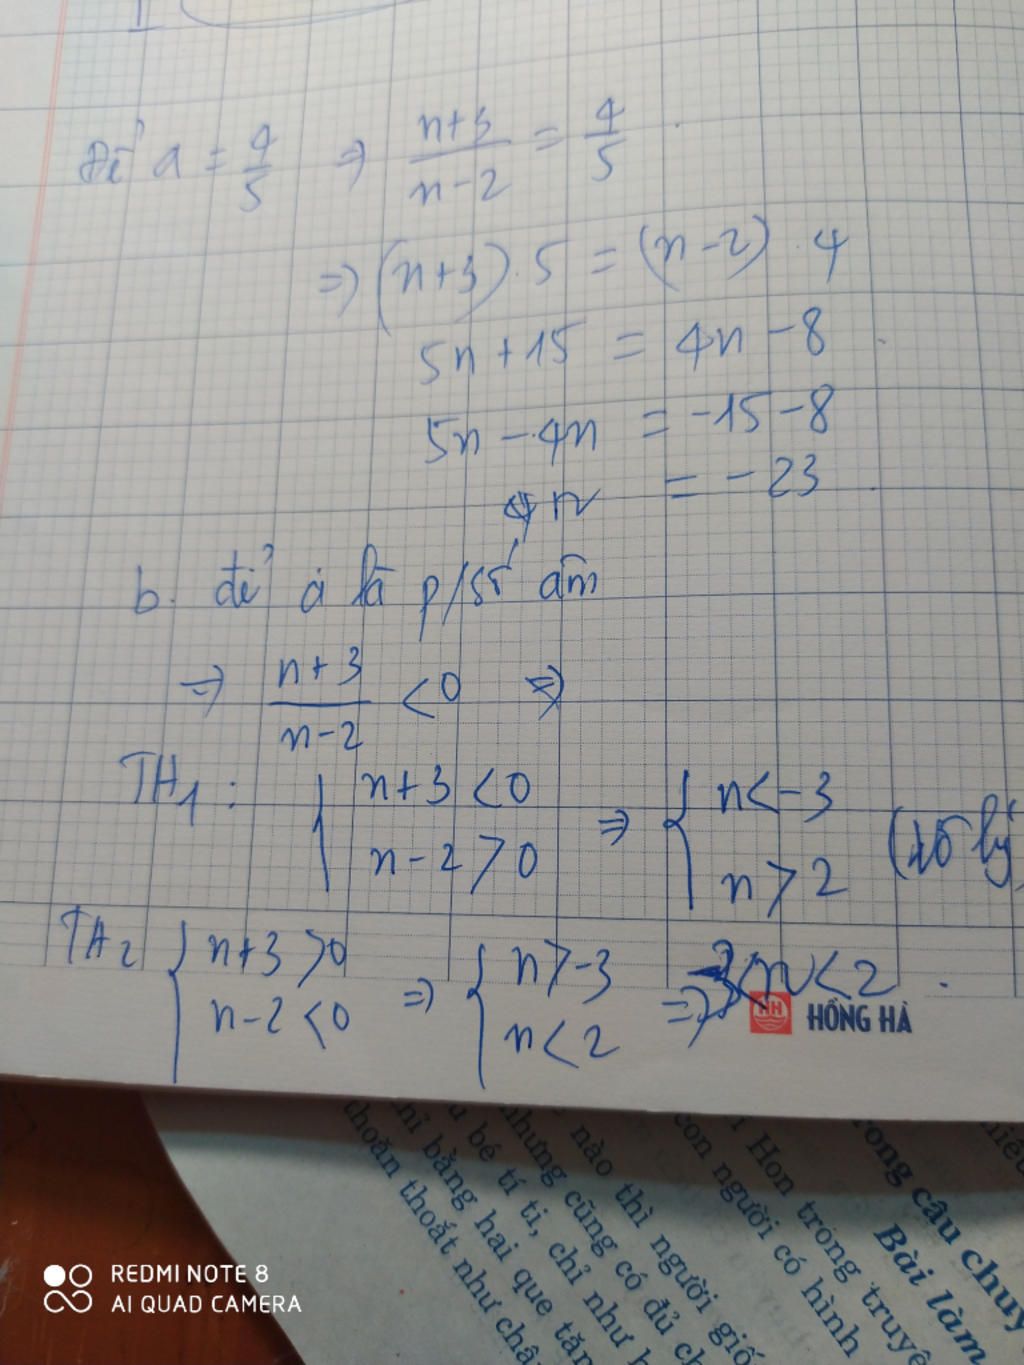 Để a = 4/5 => (n+3)/(n-2) = 4/5
=> (n+3).5 = (n-2).4
5n+15 = 4n-8
5n-4n = -15-8
n = -23
b. để a là p/số âm
=> (n+3)/(n-2) < 0 =>
TH1: { n+3 < 0 => { n < -3 (vô lý)
n-2 > 0 n > 2
TH2 { n+3 > 0 => { n > -3 => -3 < n < 2.
n-2 < 0 n < 2
HH HỒNG HÀ
trong câu chuy
Bài làm
Hon trong truyệ
con người có hình
nào thì người giố
nhưng cũng có đủ
bé tí ti, chỉ như
chỉ bằng hai que tăm
thoăn thoắt như
REDMI NOTE 8
AI QUAD CAMERA